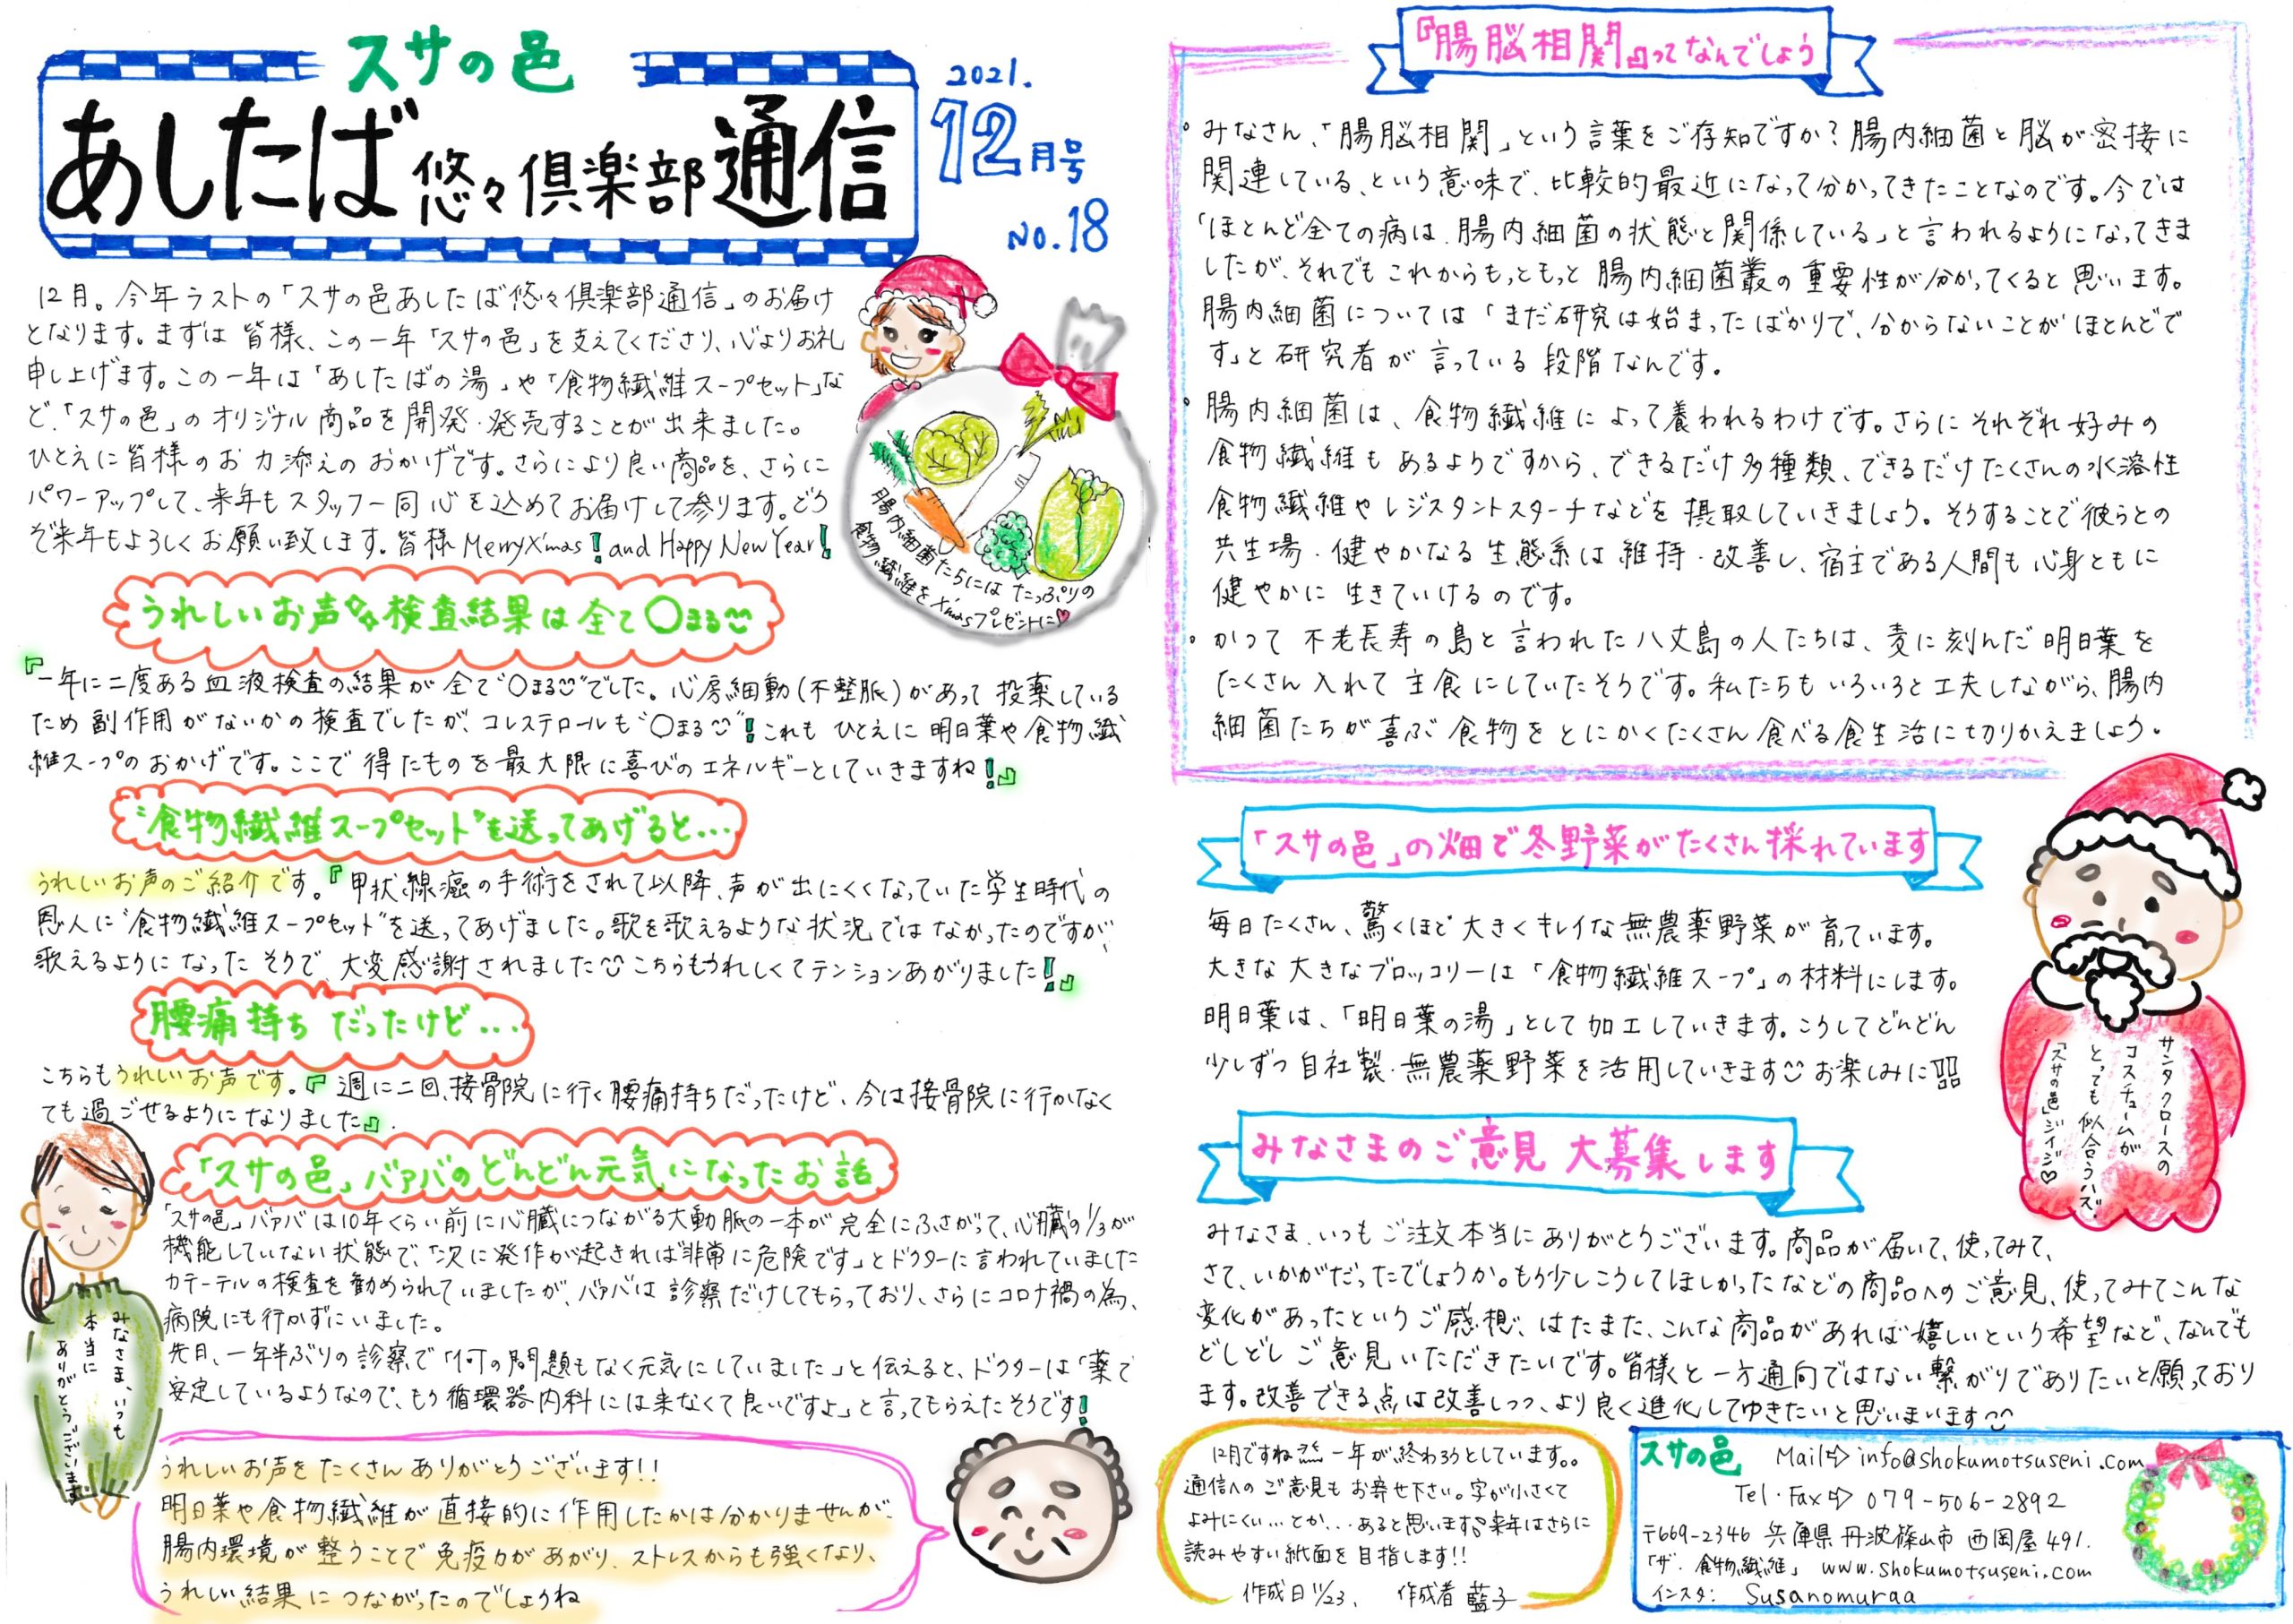 スサの邑
あしたば悠々倶楽部通信
2021.
12月号
No.18
12月。今年ラストの「スサの邑あしたば悠々倶楽部通信」のお届け
となります。まずは皆様、この一年「スサの邑」を支えてくださり、心よりお礼
申し上げます。この一年は「あしたばの湯」や「食物繊維スープセット」な
ど、「スサの邑」のオリジナル商品を開発・発売することが出来ました。
ひとえに皆様のお力添えのおかげです。さらにより良い商品を、さらに
パワーアップして、来年もスタッフ一同心を込めてお届けして参ります。どう
ぞ来年もよろしくお願い致します。皆様MerryX'mas!and Happy New Year!
腸内細菌たちにはたっぷりの
食物繊維をX'masプレゼントに♡
うれしいお声☆検査結果は全て〇まる
『一年に二度ある血液検査の結果が全て"〇まる"でした。心房細動(不整脈)があって投薬している
ため副作用がないかの検査でしたが、コレステロールも"〇まる"!これもひとえに明日葉や食物繊
維スープのおかげです。ここで得たものを最大限に喜びのエネルギーとしていきますね!』
"食物繊維スープセット"を送ってあげると...
うれしいお声のご紹介です。『甲状線癌の手術をされて以降、声が出にくくなっていた学生時代の
恩人に"食物繊維スープセット"を送ってあげました。歌を歌えるような状況ではなかったのですが、
歌えるようになったそうで、大変感謝されました こちらもうれしくてテンションあがりました!』
腰痛持ちだったけど...
こちらもうれしいお声です。『週に二回、接骨院に行く腰痛持ちだったけど、今は接骨院に行かなく
ても過ごせるようになりました』.
「スサの邑」バァバのどんどん元気になったお話
「スサの邑」バァバは10年くらい前に心臓につながる大動脈の一本が完全にふさがって、心臓の1/3が
機能していない状態で、「次に発作が起きれば非常に危険です」とドクターに言われていました
カテーテルの検査を勧められていましたが、バァバは診察だけしてもらっており、さらにコロナ禍の為、
病院にも行かずにいました。
先日、一年半ぶりの診察で「何の問題もなく元気にしていました」と伝えると、ドクターは「薬で
安定しているようなので、もう循環器内科には来なくて良いですよ」と言ってもらえたそうです!
みなさま、いつも
本当に
ありがとうございます
うれしいお声をたくさんありがとうございます!!
明日葉や食物繊維が直接的に作用したかは分かりませんが、
腸内環境が整うことで免疫力があがり、ストレスからも強くなり、
うれしい結果につながったのでしょうね
『腸脳相関』ってなんでしょう
・みなさん、「腸脳相関」という言葉をご存知ですか?腸内細菌と脳が密接に
関連している、という意味で、比較的最近になって分かってきたことなのです。今では
「ほとんど全ての病は、腸内細菌の状態と関係している」と言われるようになってきま
したが、それでもこれからもっともっと腸内細菌叢の重要性が分かってくると思います。
腸内細菌については「まだ研究は始まったばかりで、分からないことがほとんどで
す」と研究者が言っている段階なんです。
・腸内細菌は、食物繊維によって養われるわけです。さらにそれぞれ好みの
食物繊維もあるようですから、できるだけ多種類、できるだけたくさんの水溶性
食物繊維やレジスタントスターチなどを摂取していきましょう。そうすることで彼らとの
共生場・健やかなる生態系は維持・改善し、宿主である人間も心身ともに
健やかに生きていけるのです。
・かつて不老長寿の島と言われた八丈島の人たちは、麦に刻んだ明日葉を
たくさん入れて主食にしていたそうです。私たちもいろいろと工夫しながら、腸内
細菌たちが喜ぶ食物をとにかくたくさん食べる食生活に切りかえましょう。
「スサの邑」の畑で冬野菜がたくさん採れています
毎日たくさん、驚くほど大きくキレイな無農薬野菜が育ています。
大きな大きなブロッコリーは「食物繊維スープ」の材料にします。
明日葉は、「明日葉の湯」として加工していきます。こうしてどんどん
少しずつ自社製・無農薬野菜を活用していきます お楽しみに
サンタクロースの
コスチュームが
とっても似合うハズ
「スサの邑」ジイジ♡
みなさまのご意見大募集します
みなさま、いつもご注文本当にありがとうございます。商品が届いて、使ってみて、
さて、いかがだったでしょうか。もう少しこうしてほしかったなどの商品へのご意見、使ってみてこんな
変化があったというご感想、はたまた、こんな商品があれば嬉しいという希望など、なんでも
どしどしご意見いただきたいです。皆様と一方通向ではない繋がりでありたいと願っており
ます。改善できる点は改善しつつ、より良く進化してゆきたいと思いまいます
12月ですね 一年が終わろうとしています。。
通信へのご意見もお寄せ下さい。字が小さくて
よみにくい...とか...あると思います 来年はさらに
読みやすい紙面を目指します!!
作成日11/23、 作成者 藍子
スサの邑 Mail⇨info@shokumotsuseni.com
Tel・Fax⇨079-506-2892
〒669-2346 兵庫県丹波篠山市西岡屋491.
「ザ・食物繊維」 www.shokumotsuseni.com
インスタ: Susanomuraa